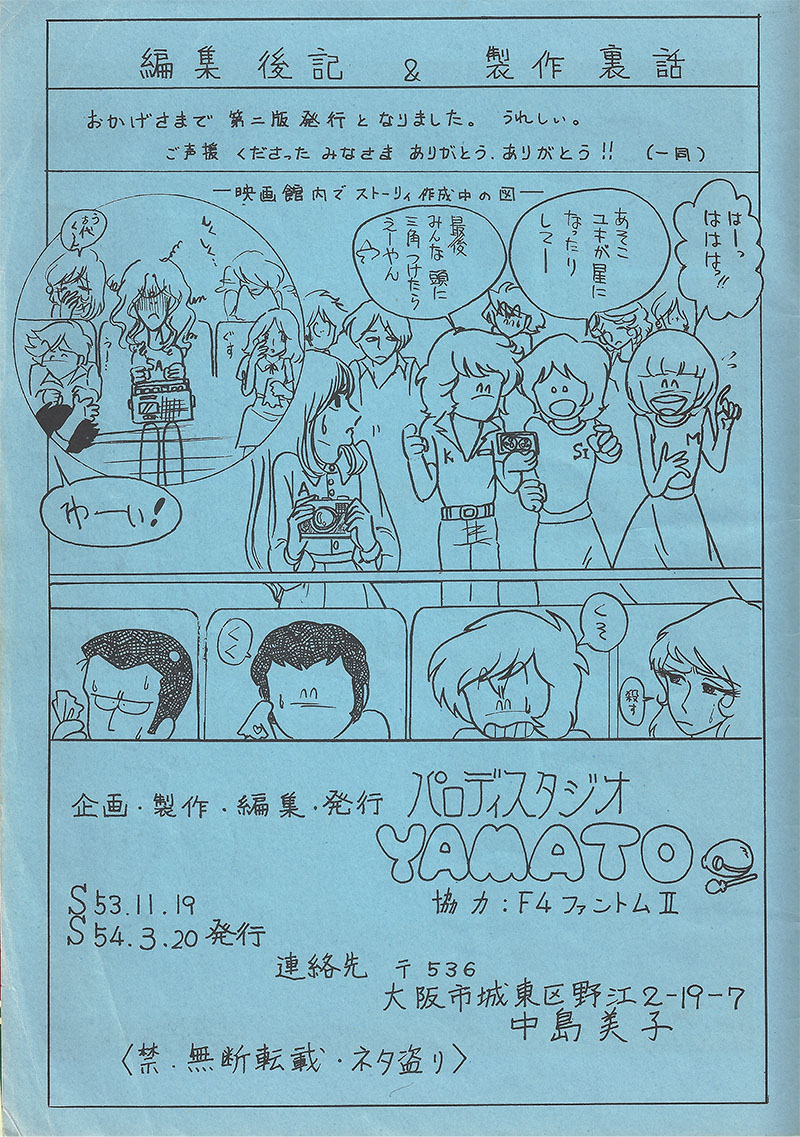 編集後記 & 製作裏話
おかげさまで 第二版発行となりました。 うれしい。
ご声援 くださった みなさま ありがとう、ありがとう!! (一同)
―映画館内で ストーリィ作成中の図―
はーっ
ははは!!
あそこ
ユキが星に
なったり
してー
最後
みんな 頭に
三角つけたら
えーやん
う
古代
くーん
しくしく…
ぐす
うー…
ゆーい!
A
K
SI
M
くく
くそ
殺す
企画・製作・編集・発行 パロディスタジオ
YAMATO
協力:F4ファントムⅡ
S53.11.19
S54.3.20 発行
連絡先 〒536
大阪市城東区野江2-19-7
中島美子
〈禁・無断転載・ネタ盗り〉